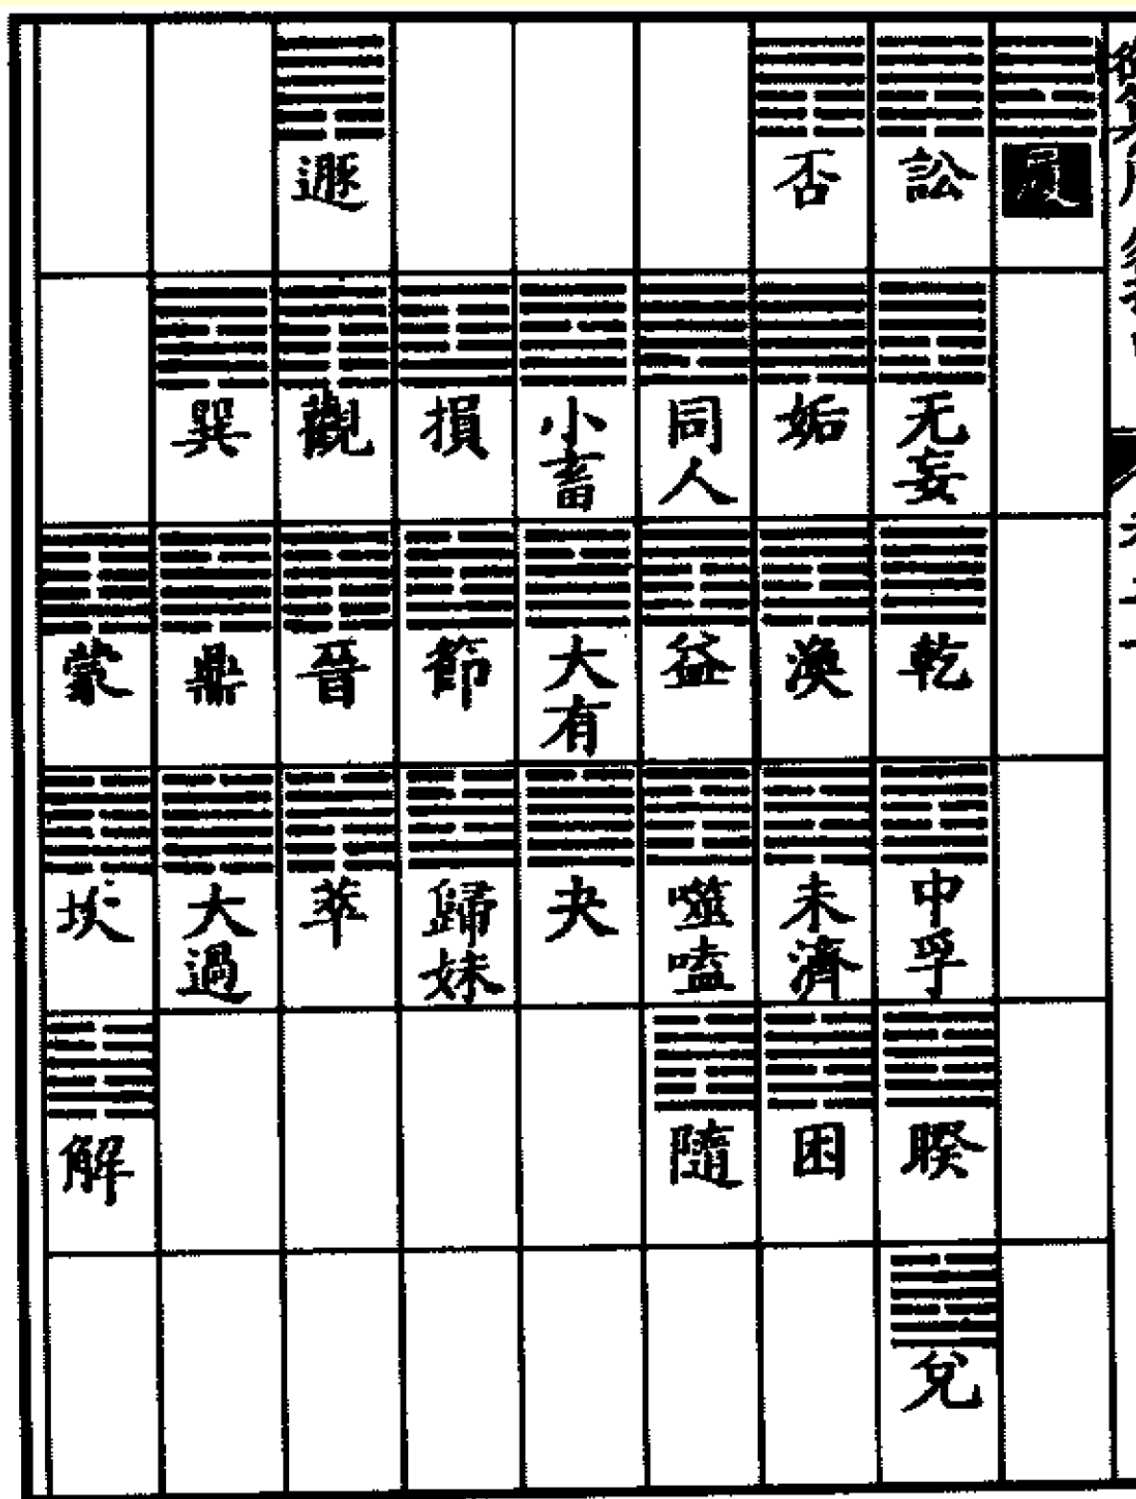 履
訟
无妄
乾
中孚
睽
兌
否
姤
渙
未濟
困
同人
益
噬嗑
隨
小畜
大有
夬
損
節
歸妹
遯
觀
晉
萃
巽
鼎
大過
蒙
坎
解